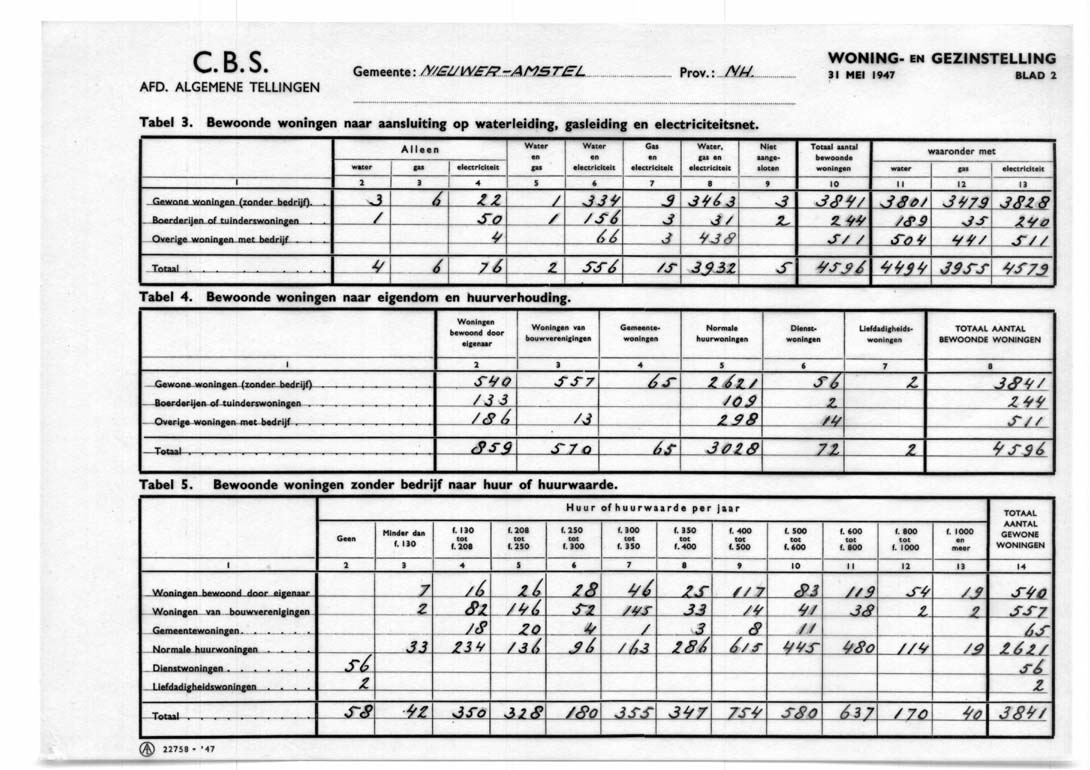 C.B.S.
AFD. ALGEMENE TELLINGEN
Gemeente: NIEUWER-AMSTEL Prov.: NH.
WONING- EN GEZINSTELLING
31 MEI 1947 BLAD 2
Tabel 3. Bewoonde woningen naar aansluiting op waterleiding, gasleiding en electriciteitsnet.
Alleen | Water en gas | Water en electriciteit | Gas en electriciteit | Water, gas en electriciteit | Niet aange-sloten | Totaal aantal bewoonde woningen | waaronder met
water | gas | electriciteit | water | gas | electriciteit
1 2 3 4 5 6 7 8 9 10 11 12 13
Gewone woningen (zonder bedrijf). 3 6 22 1 334 9 3463 3 3841 3801 3479 3828
Boerderijen of tuinderswoningen 1 50 1 156 3 31 2 244 189 35 240
Overige woningen met bedrijf 4 66 3 438 511 504 441 511
Totaal 4 6 76 2 556 15 3932 5 4596 4494 3955 4579
Tabel 4. Bewoonde woningen naar eigendom en huurverhouding.
Woningen bewoond door eigenaar | Woningen van bouwverenigingen | Gemeente-woningen | Normale huurwoningen | Dienst-woningen | Liefdadigheids-woningen | TOTAAL AANTAL BEWOONDE WONINGEN
1 2 3 4 5 6 7 8
Gewone woningen (zonder bedrijf) 540 557 65 2621 56 2 3841
Boerderijen of tuinderswoningen 133 109 2 244
Overige woningen met bedrijf 186 13 298 14 511
Totaal 859 570 65 3028 72 2 4596
Tabel 5. Bewoonde woningen zonder bedrijf naar huur of huurwaarde.
Huur of huurwaarde per jaar | TOTAAL AANTAL GEWONE WONINGEN
Geen | Minder dan f. 130 | f. 130 tot f. 208 | f. 208 tot f. 250 | f. 250 tot f. 300 | f. 300 tot f. 350 | f. 350 tot f. 400 | f. 400 tot f. 500 | f. 500 tot f. 600 | f. 600 tot f. 800 | f. 800 tot f. 1000 | f. 1000 en meer
1 2 3 4 5 6 7 8 9 10 11 12 13 14
Woningen bewoond door eigenaar 7 16 26 28 46 25 117 83 119 54 19 540
Woningen van bouwverenigingen 2 82 146 52 145 33 14 41 38 2 2 557
Gemeentewoningen. 18 20 4 1 3 8 11 65
Normale huurwoningen 33 234 136 96 163 286 615 445 480 114 19 2621
Dienstwoningen. 56 56
Liefdadigheidswoningen 2 2
Totaal 58 42 350 328 180 355 347 754 580 637 170 40 3841
22758 - '47